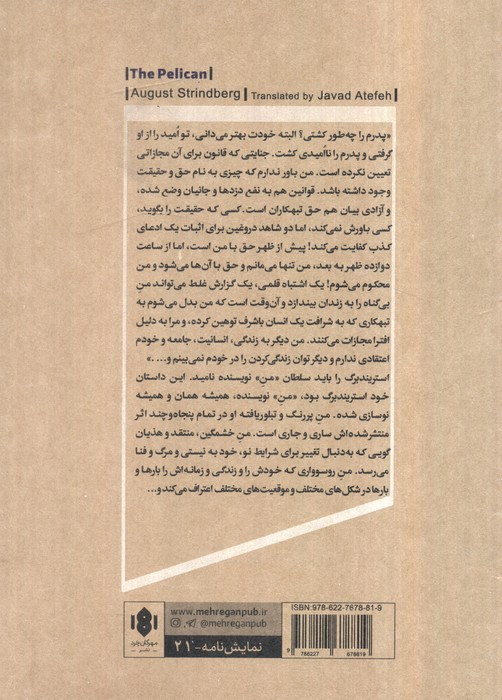 The Pelican
August Strindberg | Translated by Javad Atefeh
«پدرم را چه‌طور کشتی؟ البته خودت بهتر می‌دانی، تو اُمید را از او
گرفتی و پدرم را نااُمیدی کشت. جنایتی که قانون برای آن مجازاتی
تعیین نکرده است. من باور ندارم که چیزی به نام حق و حقیقت
وجود داشته باشد. قوانین هم به نفع دزدها و جانیان وضع شده،
و آزادی بیان هم حق تبهکاران است. کسی که حقیقت را بگوید،
کسی باورش نمی‌کند، اما دو شاهد دروغین برای اثبات یک ادعای
کذب کفایت می‌کند! پیش از ظهر حق با من است، اما از ساعت
دوازده ظهر به بعد، من تنها می‌مانم و حق با آن‌ها می‌شود و من
محکوم می‌شوم! یک اشتباه قلمی، یک گزارش غلط می‌تواند منِ
بی‌گناه را به زندان بیندازد و آن‌وقت است که من بدل می‌شوم به
تبهکاری که به شرافت یک انسان باشرف توهین کرده، و مرا به دلیل
افترا مجازات می‌کنند. من دیگر به زندگی، انسانیت، جامعه و خودم
اعتقادی ندارم و دیگر توان زندگی‌کردن را در خودم نمی‌بینم و....»
استریندبرگ را باید سلطان «منِ» نویسنده نامید. این داستان
خود استریندبرگ بود، «منِ» نویسنده، همیشه همان و همیشه
نوسازی شده. منِ پررنگ و تبلوریافته او در تمام پنجاه‌وچند اثر
منتشرشده‌اش ساری و جاری است. منِ خشمگین، منتقد و هذیان
گویی که به‌دنبال تغییر برای شرایط نو، خود به نیستی و مرگ و فنا
می‌رسد. منِ روسوواری که خودش را و زندگی و زمانه‌اش را بارها و
بارها در شکل‌های مختلف و موقعیت‌های مختلف اعتراف می‌کند و...
مهرگان خرد
نشر
www.mehreganpub.ir
@mehreganpub
نمایش‌نامه-۲۱
ISBN:978-622-7678-81-9
9 786227 678819